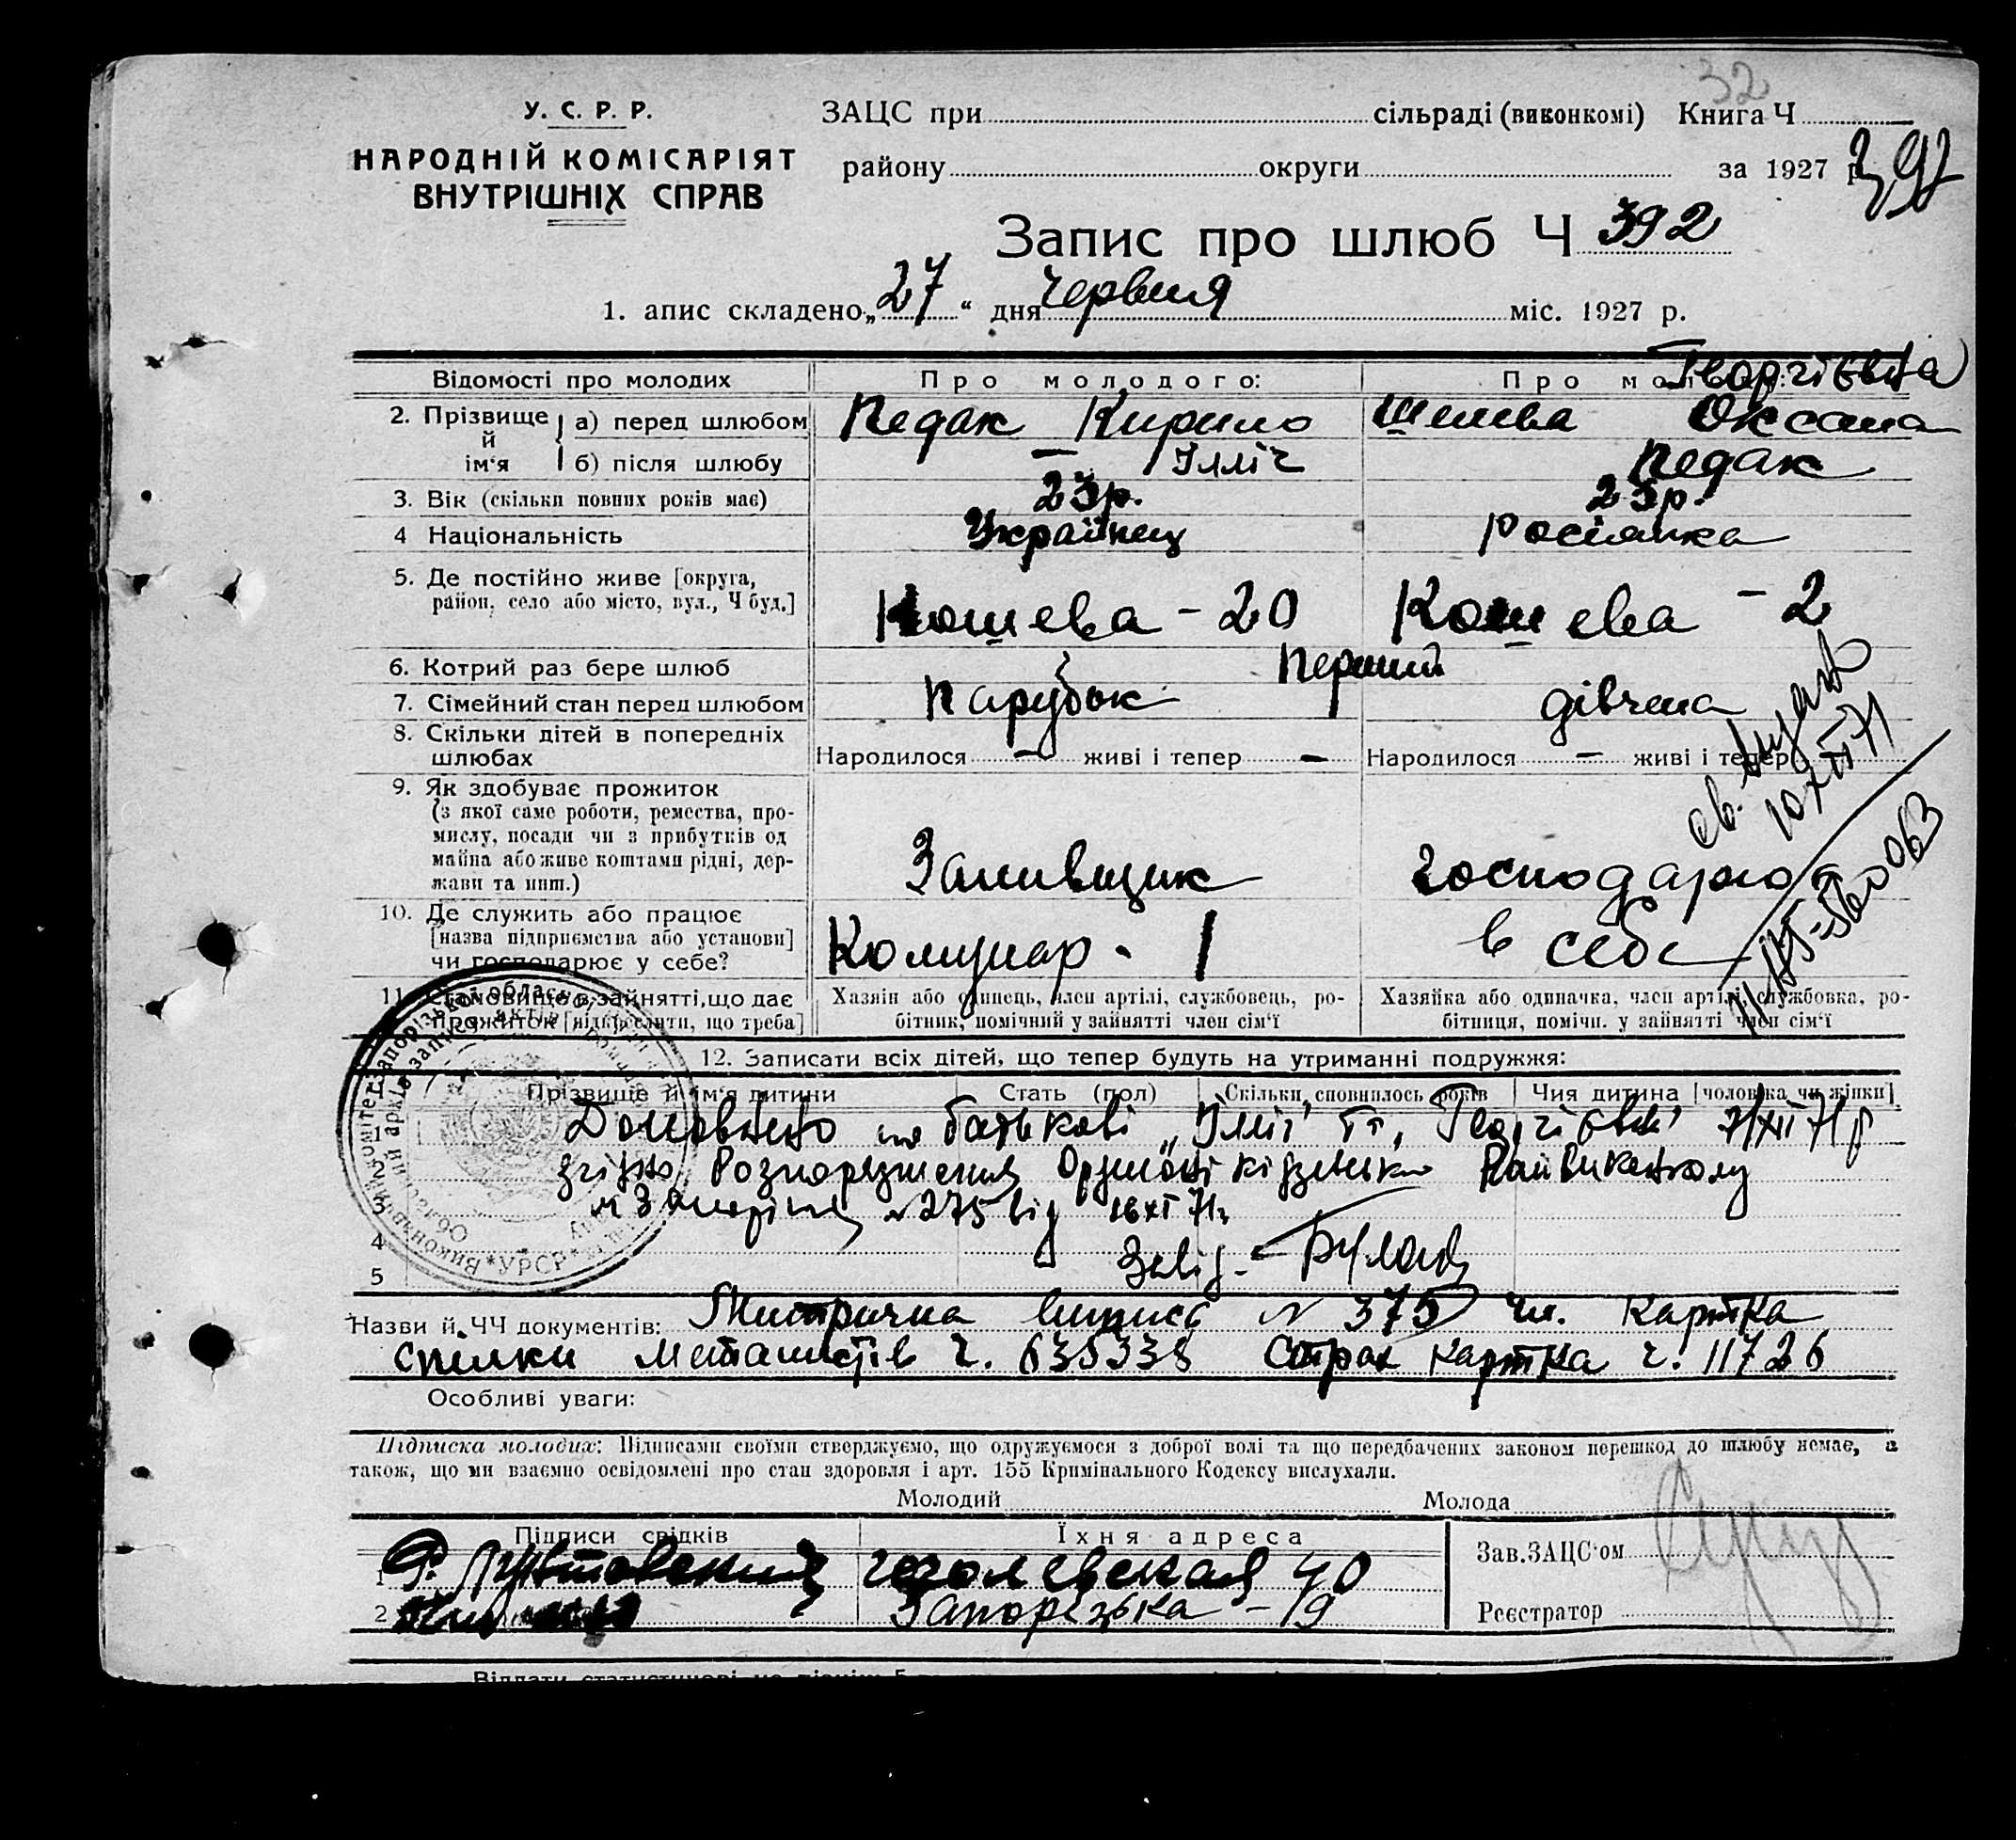 32
У. С. Р. Р.
НАРОДНІЙ КОМІСАРІЯТ
ВНУТРІШНІХ СПРАВ
ЗАЦС при сільраді (виконкомі) Книга Ч
району округи за 1927 р.
392
Запис про шлюб Ч 392
1. апис складено „27“ дня червня міс. 1927 р.
Відомості про молодих Про молодого: Про
Георгіевна
2. Прізвище й ім‘я а) перед шлюбом Педак Кирило Оксана
б) після шлюбу — Ілліч Педак
3. Вік (скільки повних років має) 23р. 23р.
4 Національність Українец Росіянка
5. Де постійно живе [округа,
район, село або місто, вул., Ч буд.] Кошева - 20 Кошева - 2
6. Котрий раз бере шлюб Перший
7. Сімейний стан перед шлюбом Парубок дівчина
8. Скільки дітей в попередніх
шлюбах Народилося — живі і тепер — Народилося — живі і тепер
10 XII 71
9. Як здобуває прожиток
(з якої саме роботи, ремества, про-
мислу, посади чи з прибутків од
майна або живе коштами рідні, дер-
жави та инш.) Заливщик господарює
10. Де служить або працює
[назва підприємства або установи]
чи господарює у себе? Комунар - 1 в себе
11. Становище в зайнятті, що дає
прожиток [підкреслити, що треба]
Хазяїн або одинець, член артілі, службовець, ро-
бітник, помічний у зайнятті член сім‘ї
Хазяйка або одиначка, член артілі, службовка, ро-
бітниця, помічн. у зайнятті член сім‘ї
12. Записати всіх дітей, що тепер будуть на утриманні подружжя:
Прізвище й ім‘я дитини Стать (пол) Скільки сповнилось років Чия дитина [чоловіка чи жінки]
1 Доповнено по батькові „Ілліч“ та „Георгіевна“
2 згідно розпорядження Орджонікідзевського Райвиконкому
3 м Запоріжжя N 275 від 16 XI 71р
4 Завід.
5
УРСР
Назви й ЧЧ документів: Митрична випись N 375 чл. картка
спилки Металистів ч. 635338 Страх картка ч. 11726
Особливі уваги:
Підписка молодих: Підписами своїми стверджуємо, що одружуємося з доброї волі та що передбачених законом перешкод до шлюбу немає, а
також, що ми взаємно освідомлені про стан здоровля і арт. 155 Кримінального Кодексу вислухали.
Молодий Молода
Підписи свідків Їхня адреса
1 гоголевская 40
2 Запорізька - 19
Зав. ЗАЦС‘ом
Реєстратор